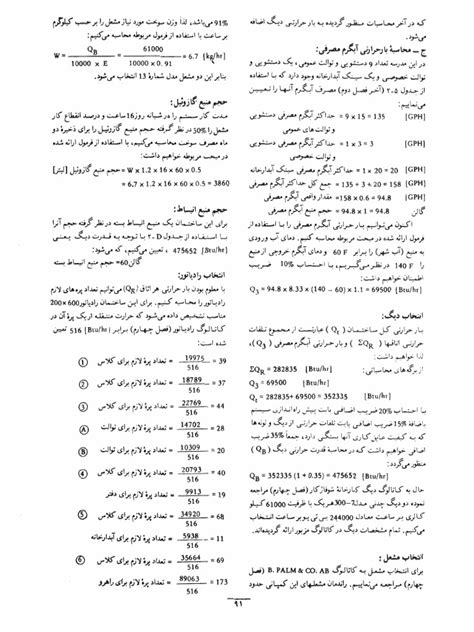 که در آخر محاسبات منظور گردیده به بار حرارتی دیگ اضافه می‌شود.
ج ـ محاسبهٔ بار حرارتی آبگرم مصرفی:
در این مدرسه تعداد 9 دستشویی و توالت عمومی، یک دستشویی و
توالت خصوصی و یک سینک آبدارخانه وجود دارد. با استفاده
از جدول ۲-۵ (آخر فصل دوم) مصرف آبگرم آنها را تعیین
می‌نماییم:
[GPH] 9 x 15 = 135 = حداکثر آبگرم مصرفی دستشویی
و توالت های عمومی
[GPH] 1 x 3 = 3 = حداکثر آبگرم مصرفی دستشویی
و توالت خصوصی
[GPH] 1 x 20 = 20 = حداکثر آبگرم مصرفی سینک آبدارخانه
[GPH] 135 + 3 + 20 = 158 = جمع کل حداکثر آبگرم مصرفی
[GPH] 158 x 0.6 = 94.8 = مقدار واقعی آبگرم مصرفی
گالن 94.8 x 1 = 94.8 = حجم منبع آبگرم مصرفی
اکنون می‌توانیم بار حرارتی آبگرم مصرفی را با استفاده از
فرمول ارائه شده در مبحث مربوطه محاسبه کنیم. دمای آب ورودی
به منبع (آب شهر) را 60 F و دمای آبگرم خروجی از منبع
را 140 F در نظر می‌گیریم، با احتساب 10% ضریب
اطمینان خواهیم داشت:
Q3 = 94.8 x 8.33 x (140 - 60) x 1.1 = 69500 [Btu/hr]
انتخاب دیگ:
بار حرارتی کل ساختمان (Qt) عبارتست از مجموع تلفات
حرارتی اتاقها (ΣQR) و بار حرارتی آبگرم مصرفی (Q3)،
لذا خواهیم داشت:
ΣQR = 282835 [Btu/hr] از برگه‌های محاسباتی:
Q3 = 69500 [Btu/hr]
Qt = 282835 + 69500 = 352335 [Btu/hr]
با احتساب 20% ضریب اضافی بابت پیش راه‌اندازی سیستم
به اضافهٔ 15% ضریب اضافی بابت تلفات حرارتی از دیگ و لوله ها
که به کیفیت عایق‌کاری آنها بستگی دارد، جمعاً 35% ضریب
اضافی خواهیم داشت که در محاسبهٔ قدرت حرارتی دیگ (QB)
منظور می‌گردد:
QB = 352335 (1 + 0.35) = 475652 [Btu/hr]
حال به کاتالوگ دیگ کارخانهٔ شوفاژکار (فصل چهارم) مراجعه
نموده دو دیگ چدنی مدل 7-300 هر یک با ظرفیت 61000 کیلو
کالری بر ساعت معادل 244000 بی تی یو بر ساعت انتخاب
می‌کنیم. تمام مشخصات دیگ در کاتالوگ مزبور ارائه گردیده‌اند.
انتخاب مشعل:
به کاتالوگ B. PALM & CO. AB (فصل
چهارم) مراجعه می‌نماییم. راندمان مشعلهای این کمپانی حدود
91% می‌باشد، لذا وزن سوخت مورد نیاز مشعل را بر حسب کیلوگرم
بر ساعت با استفاده از فرمول مربوطه محاسبه می‌کنیم:
W = QB / 10000 x E = 61000 / 10000 x 0.91 = 6.7 [kg/hr]
بنابر این دو مشعل مدل شمارهٔ 13 انتخاب می‌شود.
حجم منبع گازوئیل:
مدت کار سیستم را در شبانه روز 16 ساعت و درصد انقطاع کار
مشعل را 50% در نظر گرفته حجم منبع گازوئیل را برای ذخیرهٔ دو
ماه مصرف سوخت محاسبه می‌کنیم، با استفاده از فرمول ارائه شده
در مبحث مربوطه خواهیم داشت:
[لیتر] W x 1.2 x 16 x 60 x 0.5 = حجم منبع گازوئیل
= 6.7 x 1.2 x 16 x 60 x 0.5 = 3860
حجم منبع انبساط:
برای این ساختمان یک منبع انبساط بسته در نظر گرفته حجم آنرا
با استفاده از جدول D-۲۰ با توجه به قدرت دیگ یعنی
475652 [Btu/hr]، تعیین می‌کنیم، که می‌شود:
گالن 60 = حجم منبع انبساط بسته
انتخاب رادیاتور:
با معلوم بودن بار حرارتی هر اتاق (QR) می‌توانیم تعداد پره‌های لازم
رادیاتور را محاسبه کنیم. برای این ساختمان رادیاتور 600×200
مناسب تشخیص داده می‌شود که حرارت منتقله از یک پرهٔ آن در
کاتالوگ رادیاتور (فصل چهارم) برابر 516 [Btu/hr] تعیین
شده است:
① 19975 / 516 = 39 = تعداد پرهٔ لازم برای کلاس
② 18789 / 516 = 37 = تعداد پرهٔ لازم برای کلاس
③ 22769 / 516 = 44 = تعداد پرهٔ لازم برای کلاس
A 14702 / 516 = 28 = تعداد پرهٔ لازم برای توالت
B 10309 / 516 = 20 = تعداد پرهٔ لازم برای توالت
④ 20793 / 516 = 40 = تعداد پرهٔ لازم برای کلاس
9913 / 516 = 19 = تعداد پرهٔ لازم برای دفتر
⑤ 34920 / 516 = 68 = تعداد پرهٔ لازم برای کلاس
5938 / 516 = 11 = تعداد پرهٔ لازم برای آبدارخانه
⑥ 35664 / 516 = 69 = تعداد پرهٔ لازم برای کلاس
89063 / 516 = 173 = تعداد پرهٔ لازم برای راهرو
۹۱